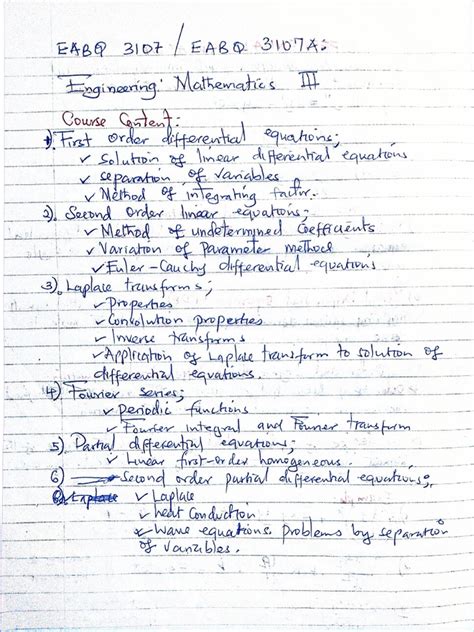 EABQ 3107 / EABQ 3107A:
Engineering: Mathematics III
Course Content:
1) First order differential equations;
✓ Solution of linear differential equations
✓ separation of variables
✓ Method of integrating factor.
2) Second order linear equations;
✓ Method of undetermined Coefficients
✓ Variation of Parameter method
✓ Euler-Cauchy differential equations
3). Laplace transforms;
✓ Properties
✓ Convolution properties
✓ Inverse transforms
✓ Application of Laplace transform to solution of
differential equations.
4) Fourier series;
✓ Periodic functions
✓ Fourier integral and Fourier transform
5). Partial differential equations;
✓ Linear first-order homogeneous.
6) Second order partial differential equations;
Laplace ✓ Laplace
✓ heat Conduction
✓ Wave equations. problems by separation
of variables.